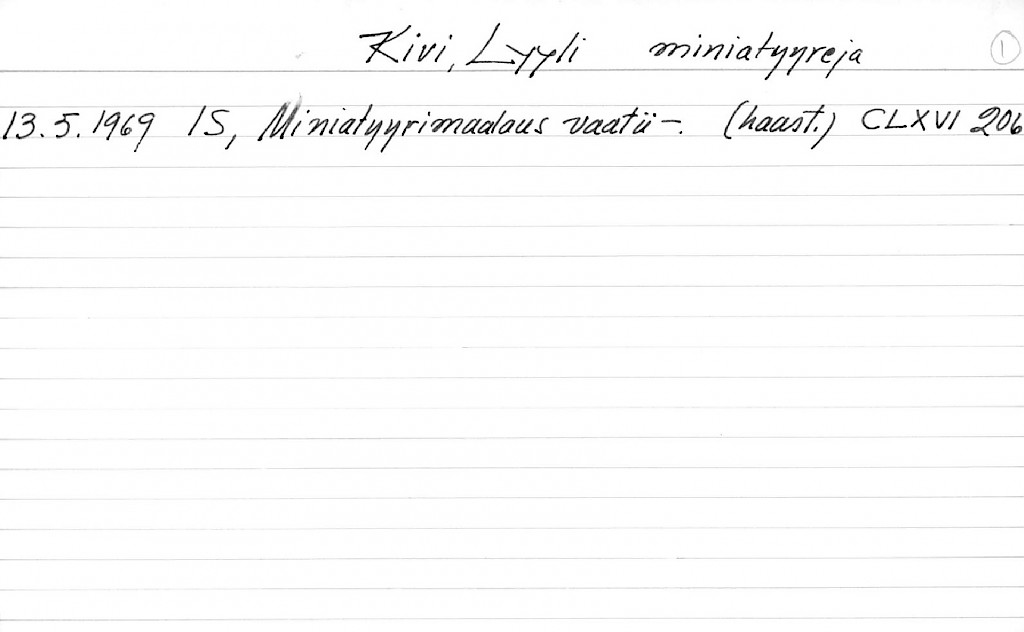 Kivi, Lyyli miniatyyreja 1
13.5.1969 IS, Miniatyyrimaalaus vaatii -. (haast.) CLXVI 206